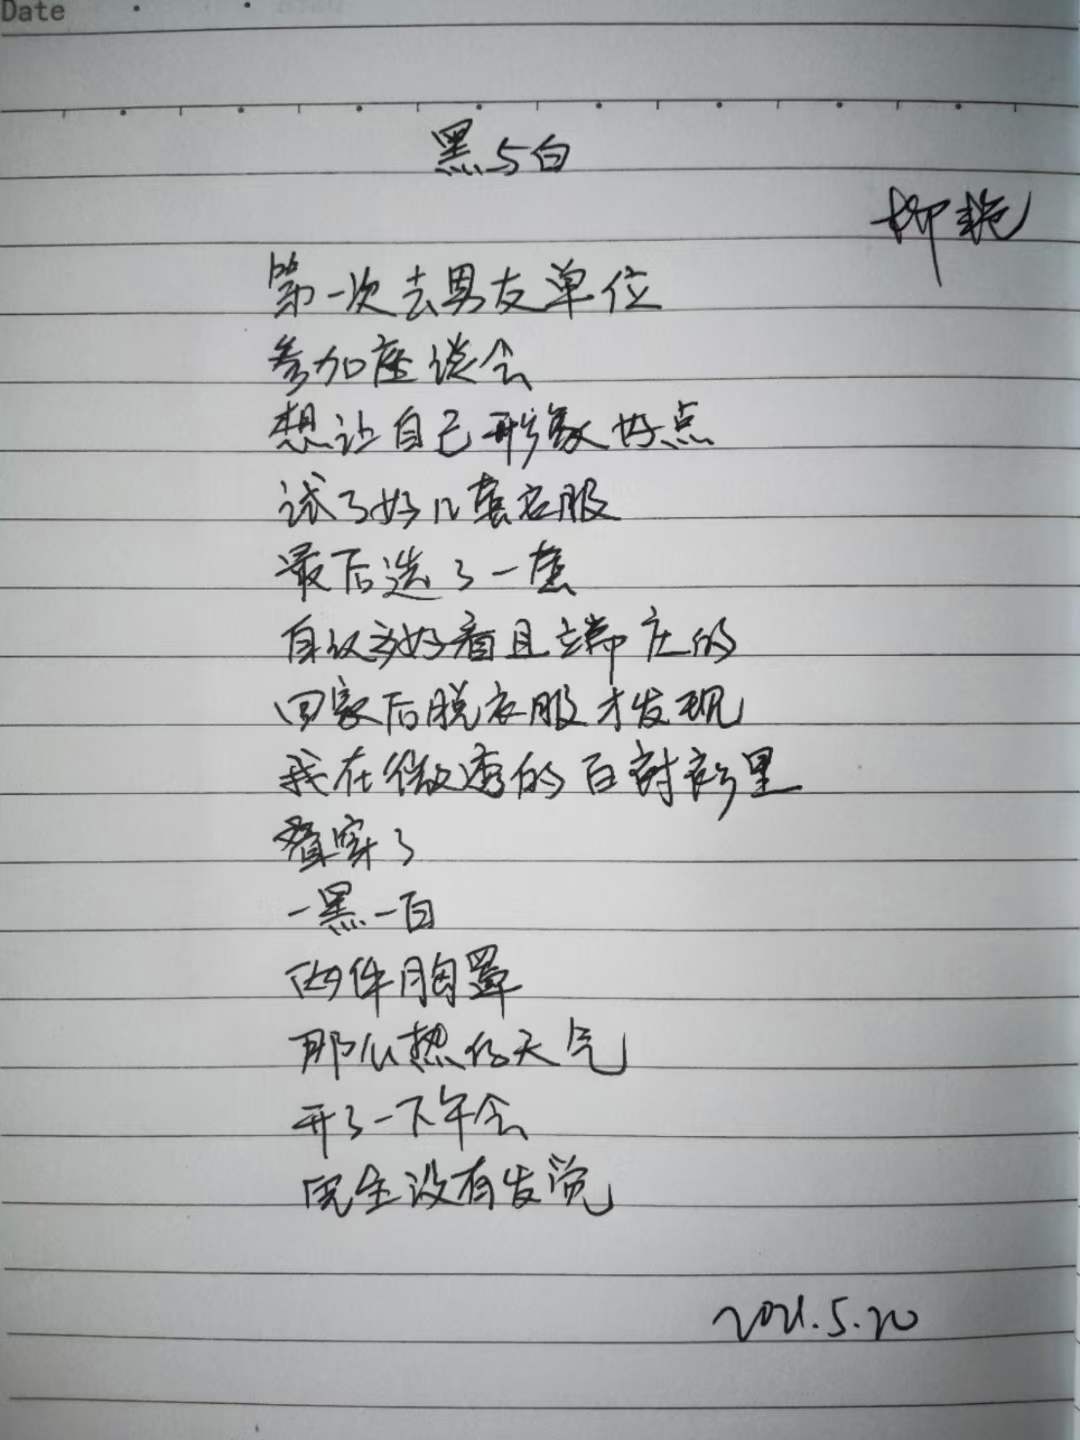 Date
黑与白
柳艳
第一次去男友单位
参加座谈会
想让自己形象好点
试了好几套衣服
最后选了一套
自认为好看且端庄的
回家后脱衣服才发现
我在微透的白衬衫里
叠穿了
一黑一白
两件胸罩
那么热的天气
开了一下午会
完全没有发觉
2021.5.20